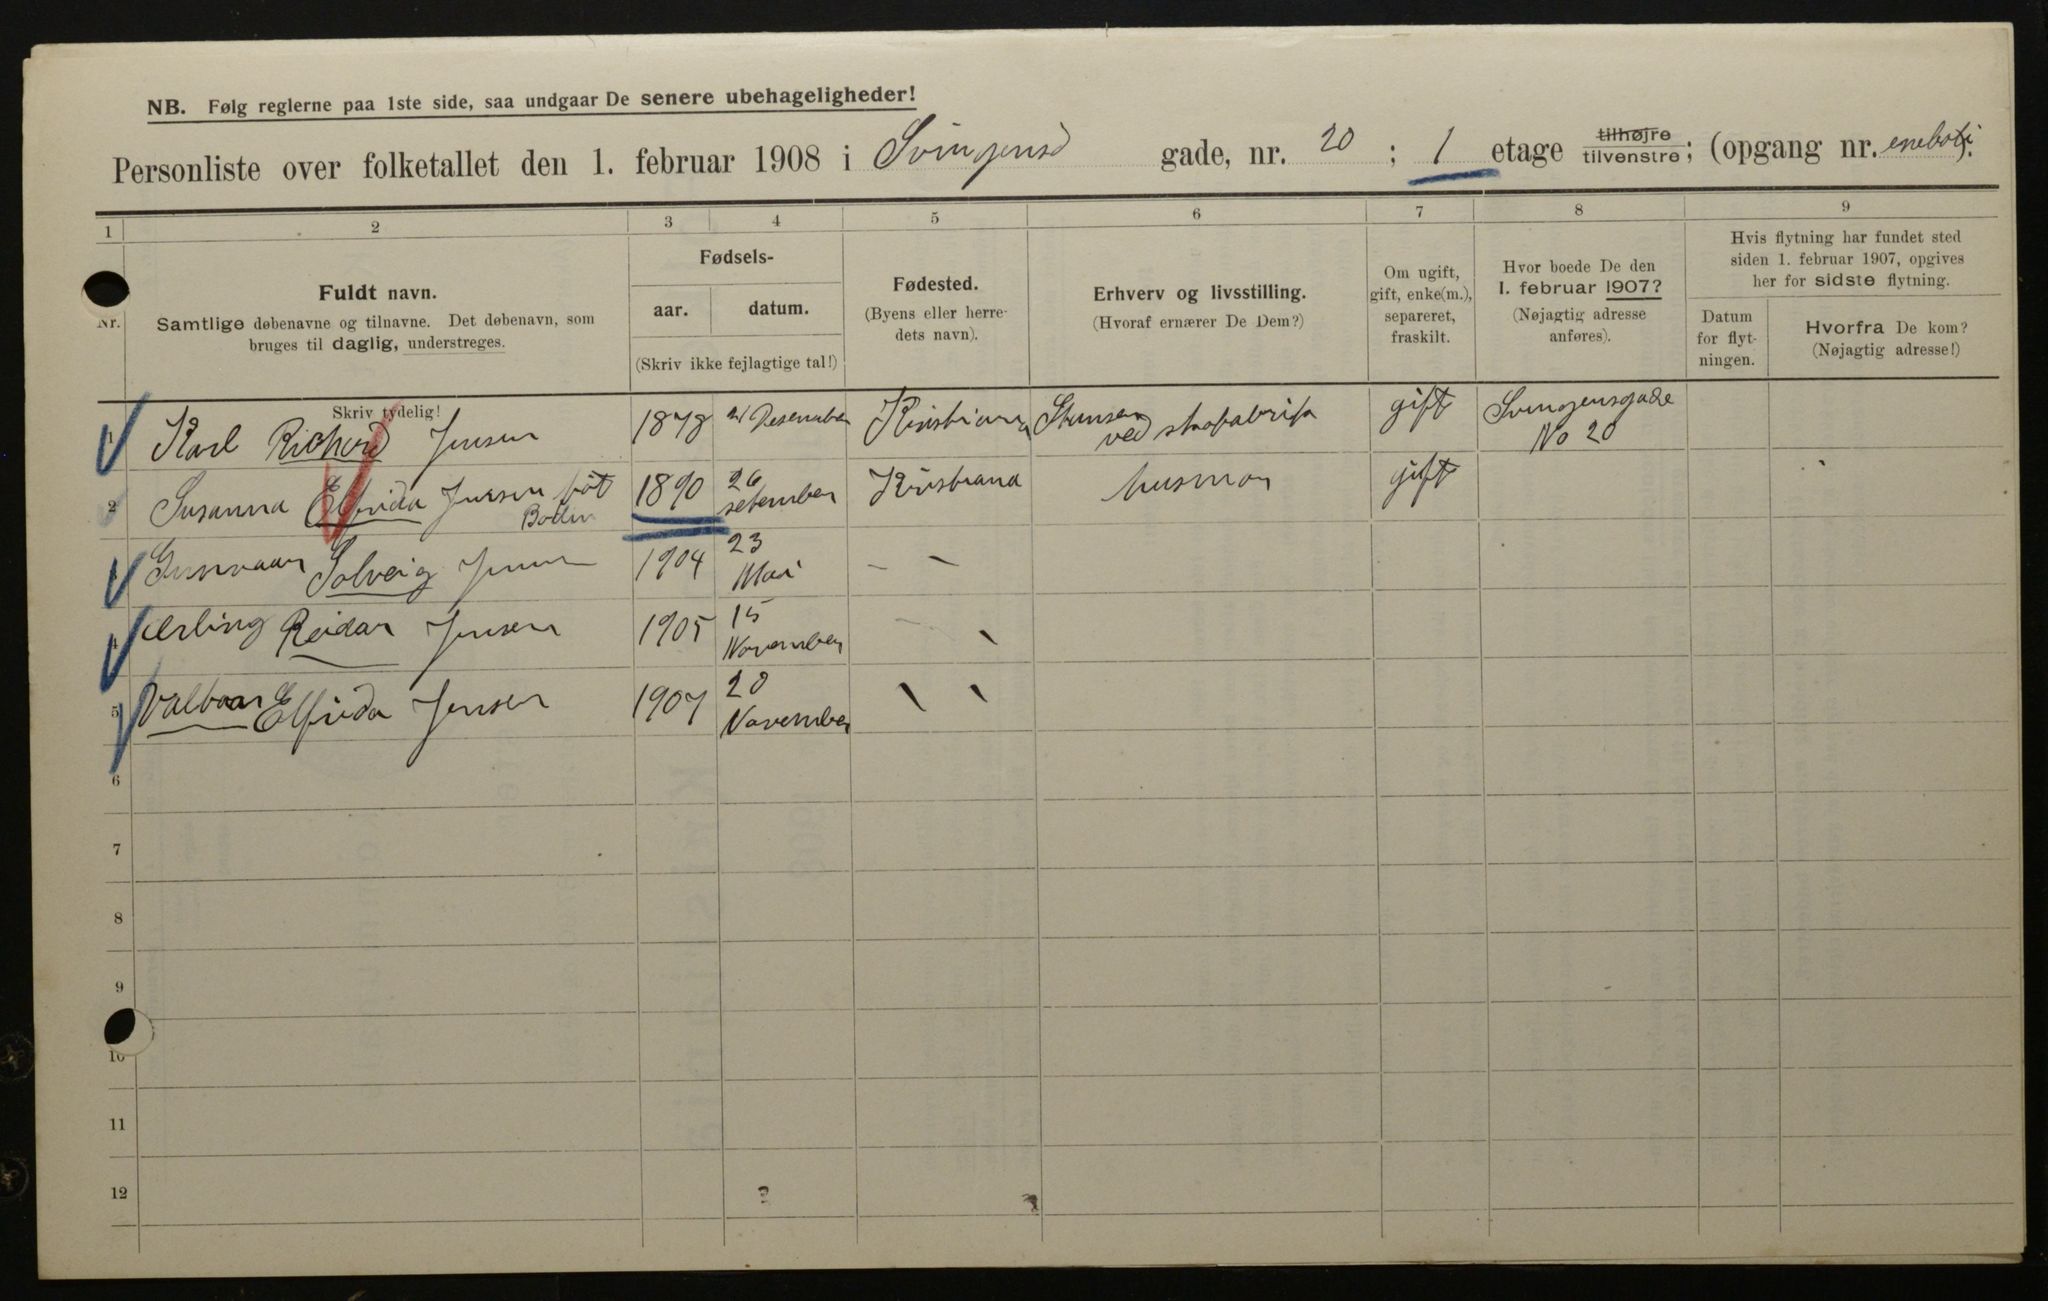 NB. Følg reglerne paa 1ste side, saa undgaar De senere ubehageligheder!
Personliste over folketallet den 1. februar 1908 i Svingensd gade, nr. 20 ; 1 etage tilhøjre tilvenstre; (opgang nr. eneboti).
1 2 3 4 5 6 7 8 9
Nr.
Fuldt navn.
Samtlige døbenavne og tilnavne. Det døbenavn, som
bruges til daglig, understreges.
Skriv tydelig!
Fødsels-
aar. datum.
(Skriv ikke fejlagtige tal!)
Fødested.
(Byens eller herre-
dets navn).
Erhverv og livsstilling.
(Hvoraf ernærer De Dem?)
Om ugift,
gift, enke(m.),
separeret,
fraskilt.
Hvor boede De den
1. februar 1907?
(Nøjagtig adresse
anføres).
Hvis flytning har fundet sted
siden 1. februar 1907, opgives
her for sidste flytning.
Datum
for flyt-
ningen.
Hvorfra De kom?
(Nøjagtig adresse!)
1 Karl Richard Jensen 1878 21 Desember Kristiania ved skofabrik gift Svingensgade
No 20
2 Susanna Elfrida Jensen föt
Bodin 1890 26
setember Kristiana husmor gift
Gunvaar Solveig Jensen 1904 23
Mai
4 Erling Reidar Jensen 1905 15
November
5 Valboar Elfrida Jensen 1907 20
November
6
7
8
9
10
11
12